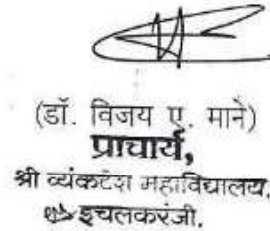 (डॉ. विजय ए. माने)
प्राचार्य,
श्री व्यंकटेश महाविद्यालय,
इचलकरंजी.